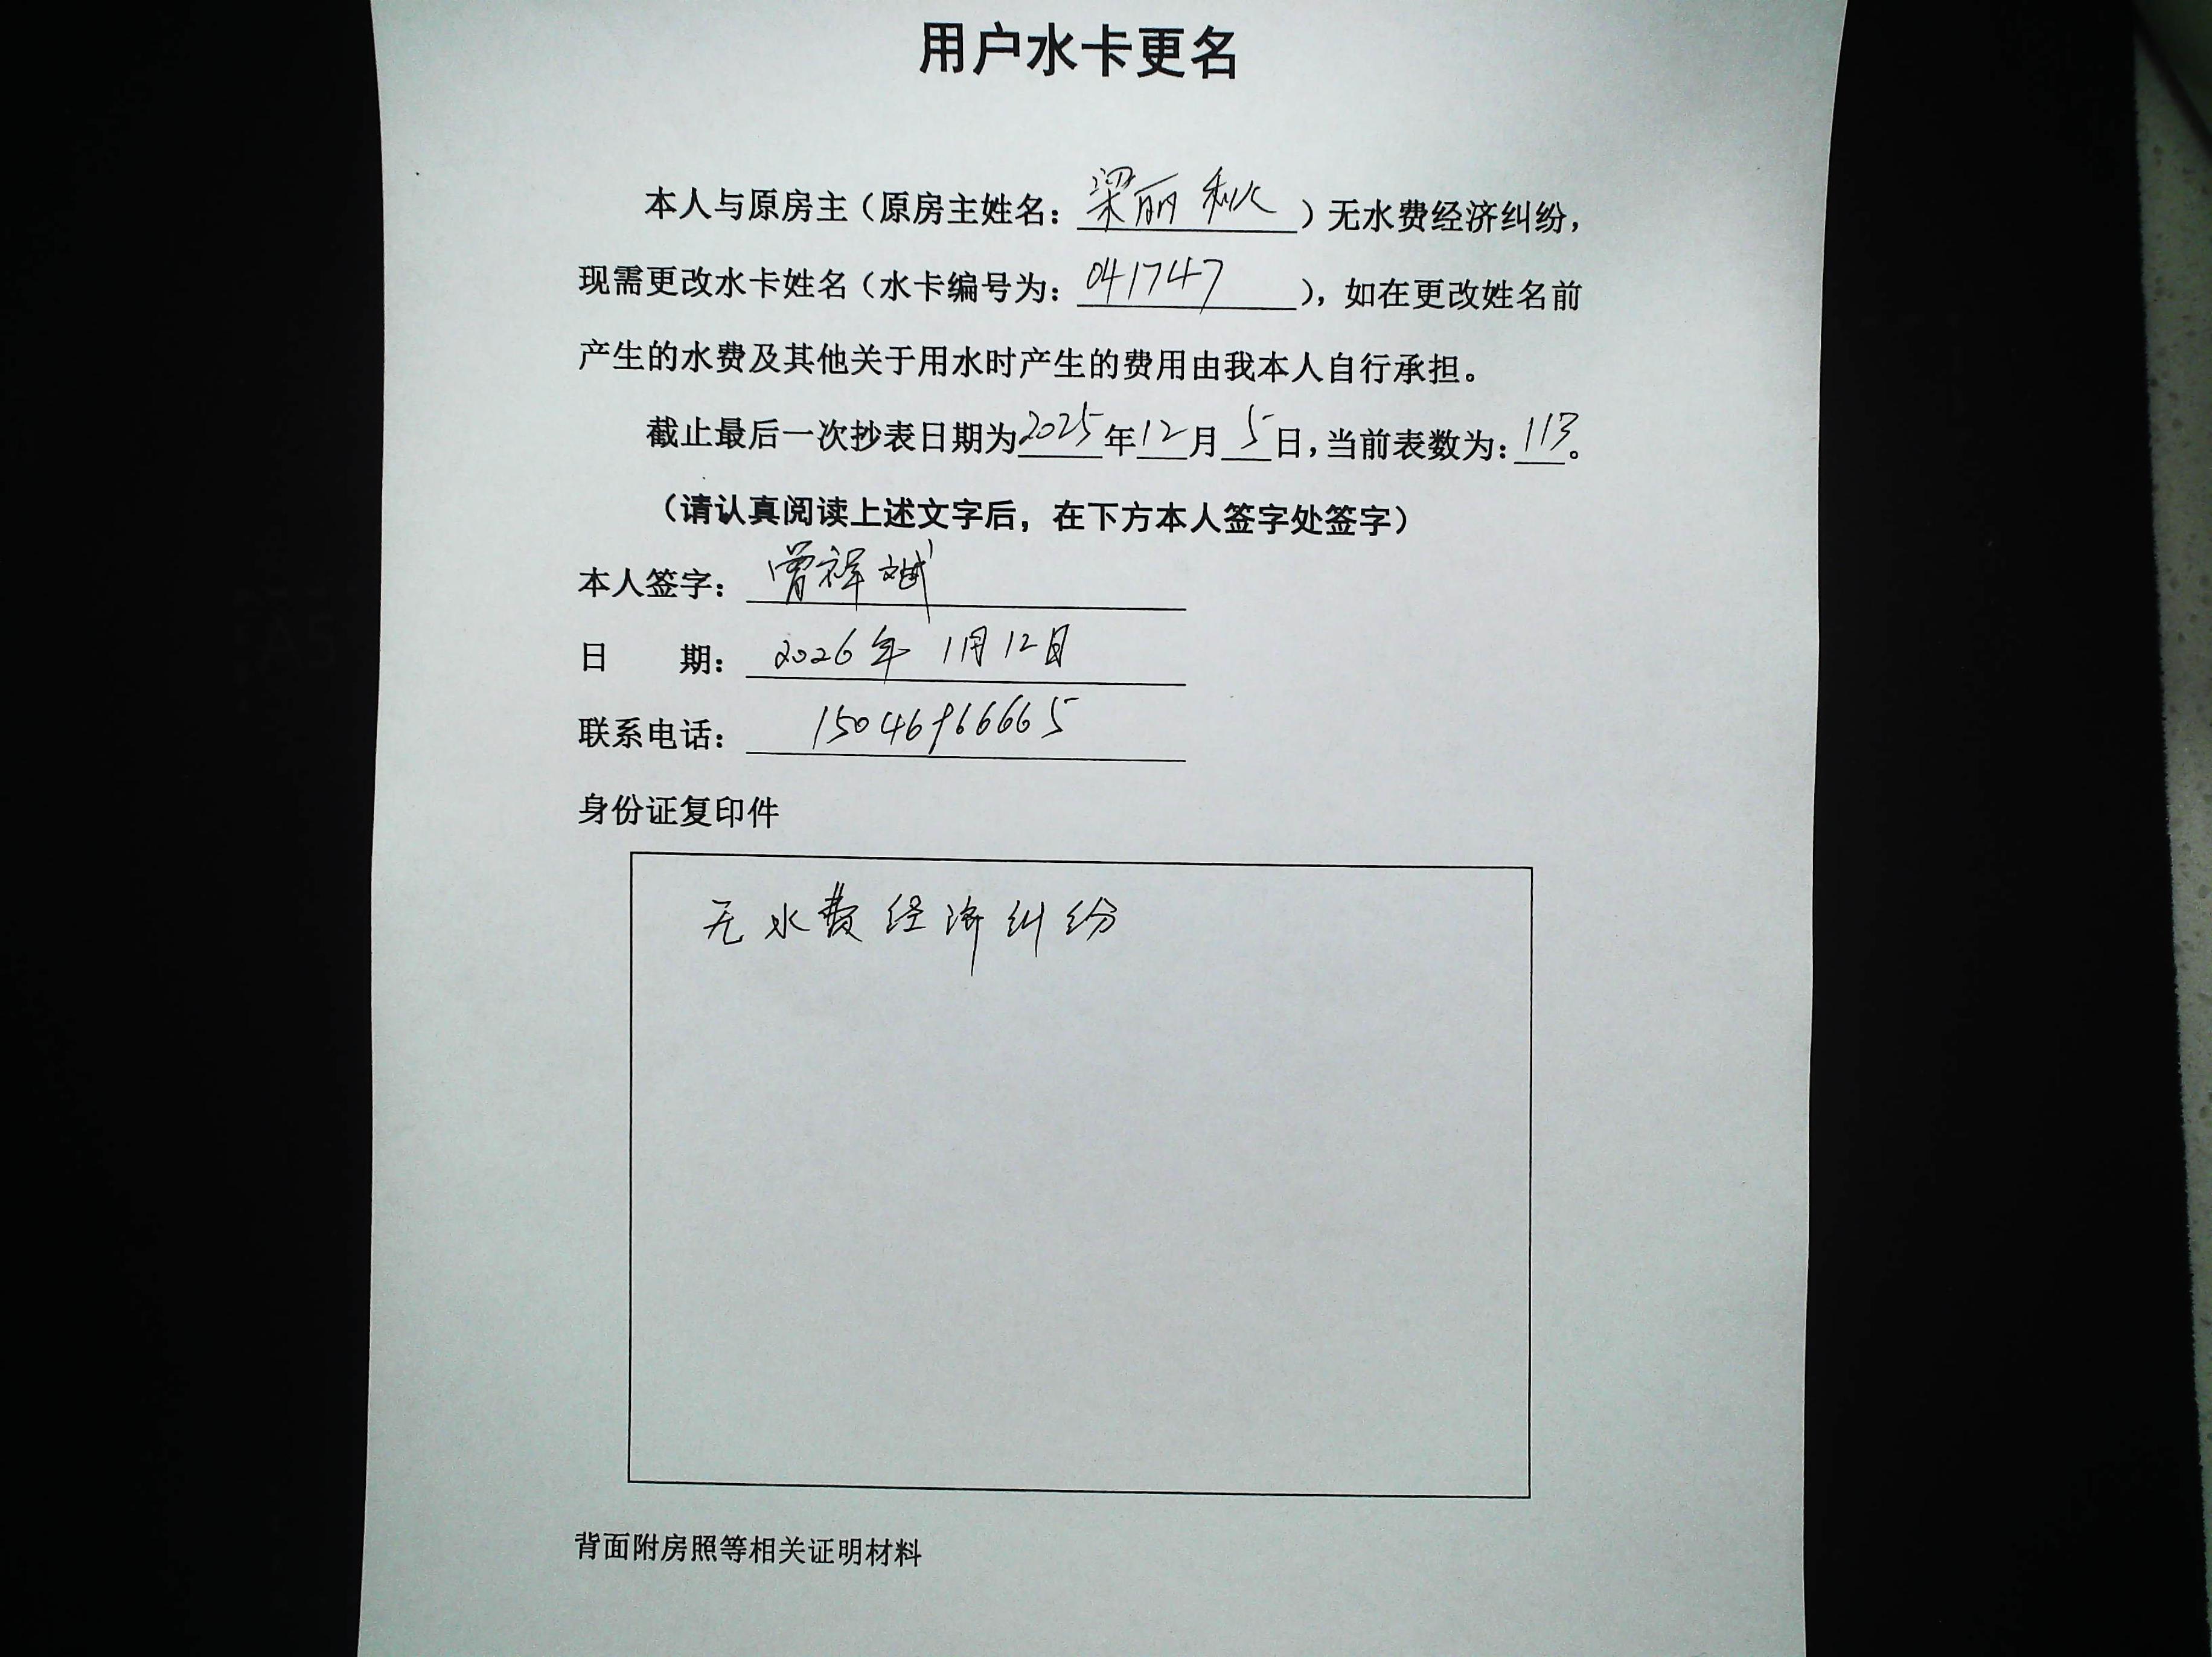 用户水卡更名
本人与原房主（原房主姓名：梁丽秋）无水费经济纠纷，
现需更改水卡姓名（水卡编号为：041747），如在更改姓名前
产生的水费及其他关于用水时产生的费用由我本人自行承担。
截止最后一次抄表日期为2025年12月5日，当前表数为：113。
（请认真阅读上述文字后，在下方本人签字处签字）
本人签字：曾祥斌
日　　期：2026年 1月12日
联系电话：15046966665
身份证复印件
无水费经济纠纷
背面附房照等相关证明材料